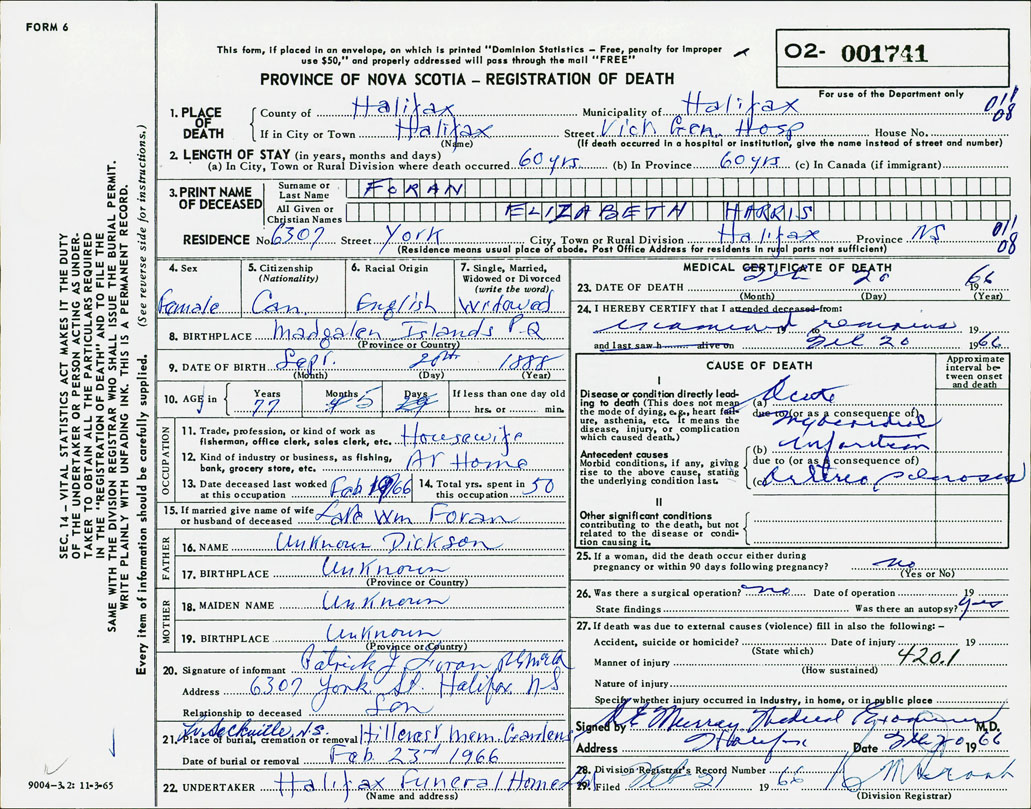 FORM 6
This form, if placed in an envelope, on which is printed "Dominion Statistics – Free, penalty for improper
use $50," and properly addressed will pass through the mail "FREE"
02- 001741
PROVINCE OF NOVA SCOTIA – REGISTRATION OF DEATH
For use of the Department only
011
08
1. PLACE OF DEATH
County of Halifax Municipality of Halifax
If in City or Town Halifax Street Vich Gen. Hosp House No.
(Name) (If death occurred in a hospital or institution, give the name instead of street and number)
2. LENGTH OF STAY (in years, months and days)
(a) In City, Town or Rural Division where death occurred 60 yrs (b) In Province 60 yrs (c) In Canada (if immigrant)
3. PRINT NAME OF DECEASED
Surname or Last Name FORAN
All Given or Christian Names ELIZABETH HARRIS
RESIDENCE No. 6307 Street York City, Town or Rural Division Halifax Province NS
011
08
(Residence means usual place of abode. Post Office Address for residents in rural parts not sufficient)
4. Sex
Female
5. Citizenship
(Nationality)
Can.
6. Racial Origin
English
7. Single, Married,
Widowed or Divorced
(write the word)
Widowed
8. BIRTHPLACE Madgalen Islands P.Q
(Province or Country)
9. DATE OF BIRTH Sept. 20th 1888
(Month) (Day) (Year)
10. AGE in Years 77 Months 5 Days
If less than one day old
hrs. or min.
OCCUPATION
11. Trade, profession, or kind of work as
fisherman, office clerk, sales clerk, etc. Housewife
12. Kind of industry or business, as fishing,
bank, grocery store, etc. At Home
13. Date deceased last worked
at this occupation Feb 1966
14. Total yrs. spent in
this occupation 50
15. If married give name of wife
or husband of deceased Late Wm Foran
FATHER
16. NAME Unknown Dickson
17. BIRTHPLACE Unknown
(Province or Country)
MOTHER
18. MAIDEN NAME Unknown
19. BIRTHPLACE Unknown
(Province or Country)
20. Signature of informant Patrick J Foran
Address 6307 York St. Halifax NS
Relationship to deceased Son
Lr Sackville, N.S.
21. Place of burial, cremation or removal Hillcrest Mem. Gardens
Date of burial or removal Feb. 23rd 1966
22. UNDERTAKER Halifax Funeral Home
(Name and address)
MEDICAL CERTIFICATE OF DEATH
23. DATE OF DEATH Feb 20 1966
(Month) (Day) (Year)
24. I HEREBY CERTIFY that I attended deceased from:
examined remains 19
and last saw h alive on Feb 20 1966
CAUSE OF DEATH
Approximate
interval be-
tween onset
and death
I
Disease or condition directly lead-
ing to death (This does not mean
the mode of dying, e.g., heart fail-
ure, asthenia, etc. It means the
disease, injury, or complication
which caused death.)
(a) Acute
due to (or as a consequence of)
Myocardial
(b) Infarction
due to (or as a consequence of)
(c) Arteriosclerosis
Antecedent causes
Morbid conditions, if any, giving
rise to the above cause, stating
the underlying condition last.
II
Other significant conditions
contributing to the death, but not
related to the disease or condi-
tion causing it.
25. If a woman, did the death occur either during
pregnancy or within 90 days following pregnancy? no
(Yes or No)
26. Was there a surgical operation? no Date of operation 19
State findings Was there an autopsy? yes
27. If death was due to external causes (violence) fill in also the following: –
Accident, suicide or homicide? Date of injury 19
(State which)
420.1
Manner of injury
(How sustained)
Nature of injury
Specify whether injury occurred in Industry, in home, or in public place
Signed by Murray Medical Examiner M.D.
Address Halifax Date Feb 20 1966
28. Division Registrar's Record Number
29. Filed Feb 21 1966
(Division Registrar)
SEC. 14 – VITAL STATISTICS ACT MAKES IT THE DUTY
OF THE UNDERTAKER OR PERSON ACTING AS UNDER-
TAKER TO OBTAIN ALL THE PARTICULARS REQUIRED
IN THE "REGISTRATION OF DEATH" AND TO FILE THE
SAME WITH THE DIVISION REGISTRAR WHO SHALL ISSUE THE BURIAL PERMIT.
WRITE PLAINLY WITH UNFADING INK. THIS IS A PERMANENT RECORD.
Every item of information should be carefully supplied. (See reverse side for instructions.)
9004-3.2: 11-3-65